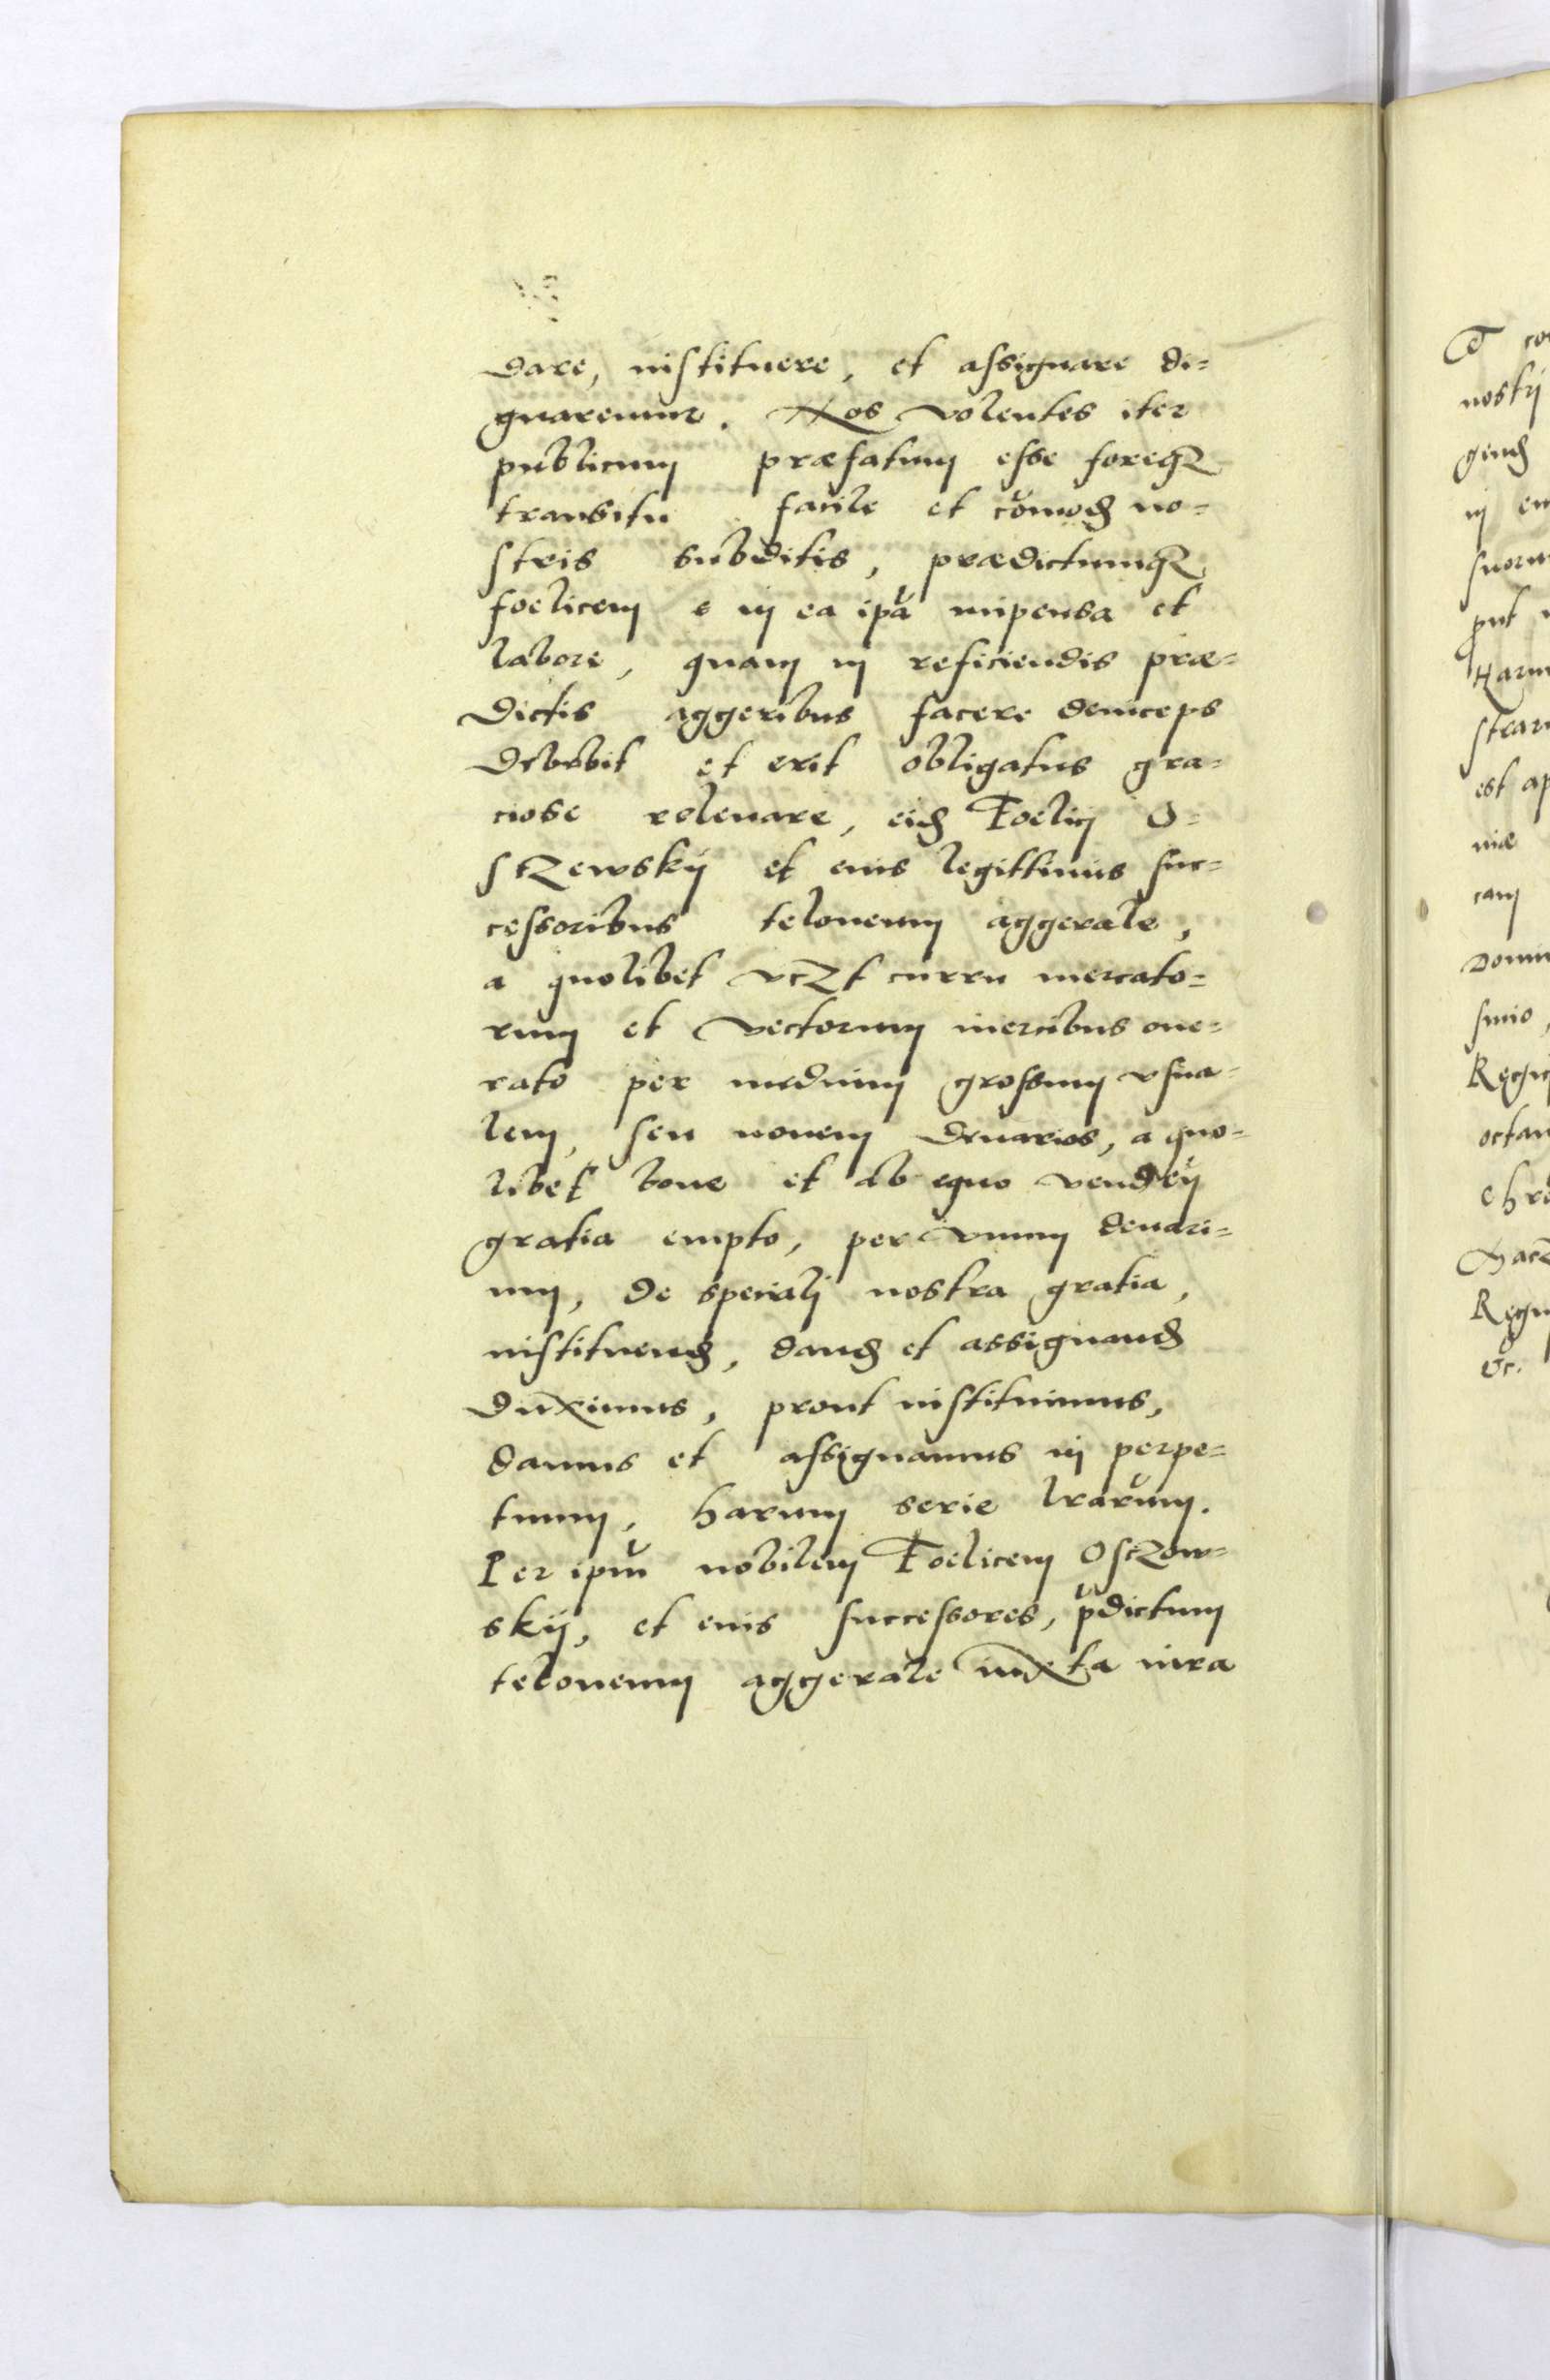 dare, instituere, et assignare di=
gnaremur. Nos volentes iter
publicum præfatum esse foreqꝫ
transitu facile et com̃oď no=
stris subditis, prædictumqꝫ
foelicem e in ea ip̃a impensa et
labore, quam in reficiendis præ=
dictis aggeribus facere deinceps
debebit et erit obligatus gra=
ciose relevare, eiď Foelicj O=
sczewskij et eius legittimis suc=
cessoribus teloneum aggerale,
a quolibet vczt curru mercato=
rum et vectorum mercibus one=
rato per medium grossum vsua=
lem, seu novem denarios, a quo=
libet bove et ab equo vendẽij
gratia empto, per vnum denari=
um, de specialj nostra gratia,
instituenď, danď et assignanď
duximus, prout instituimus,
damus et assignamus in perpe=
tuum, harum serie lr̃arum.
Per ip̃m nobilem Foelicem Osczew=
skij, et eius successores, p̃dictum
teloneum aggerale iuxta iura
E co
nostrj
genď
in em
suorum
put
Harum
strar
est ap
niæ
cam
domin
simo,
Regn
octau
Chr̃
Regn
&c.